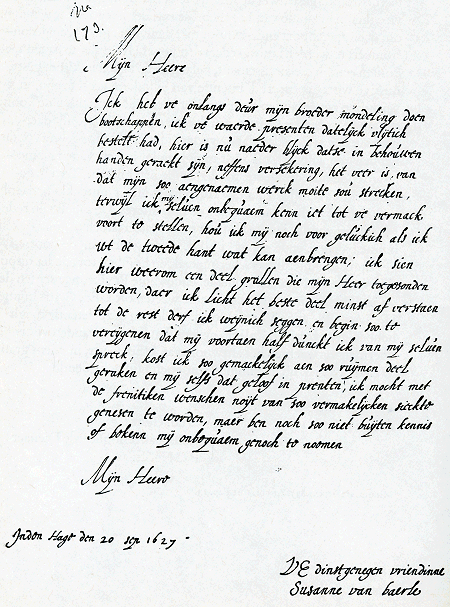 173.
Mijn Heere
Ick heb ve onlangs deur mijn broeder mondeling doen
bootschappen, ick ve waerde presenten datelyck vlytich
bestelt had, hier is nu naeder blyck datse in behouwen
handen gerackt sijn, neffens versekering, het veer is, van
dat mijn soo aengenaemen werck moite sou strecken,
terwijl ick my selven onbequaem kenn iet tot ve vermack
voort to stellen, hou ick my noch voor geluckich als ick
wt de tweede hant wat kan aenbrengen; ick sien
hier weerom een deel grollen die mijn Heer toegesonden
worden, daer ick licht het beste deel minst af verstaen
tot de rest derf ick weynich seggen en begin soo te
vereygenen dat my voortaen half dunckt ick van my selven
spreck; kost ick soo gemackelyck aen soo ruijmen deel
geraken en my selfs dat geloof in prenten, ick mocht met
de frenitiken wenschen noyt van soo vermakelycken sieckte
genesen te worden, maer ben noch soo niet buyten kennis
of bekenn my onbequaem genoch to noomen
Mijn Heere
Inden Hage den 20 sep 1627
VE dinstgenegen vriendinne
Susanne van baerle